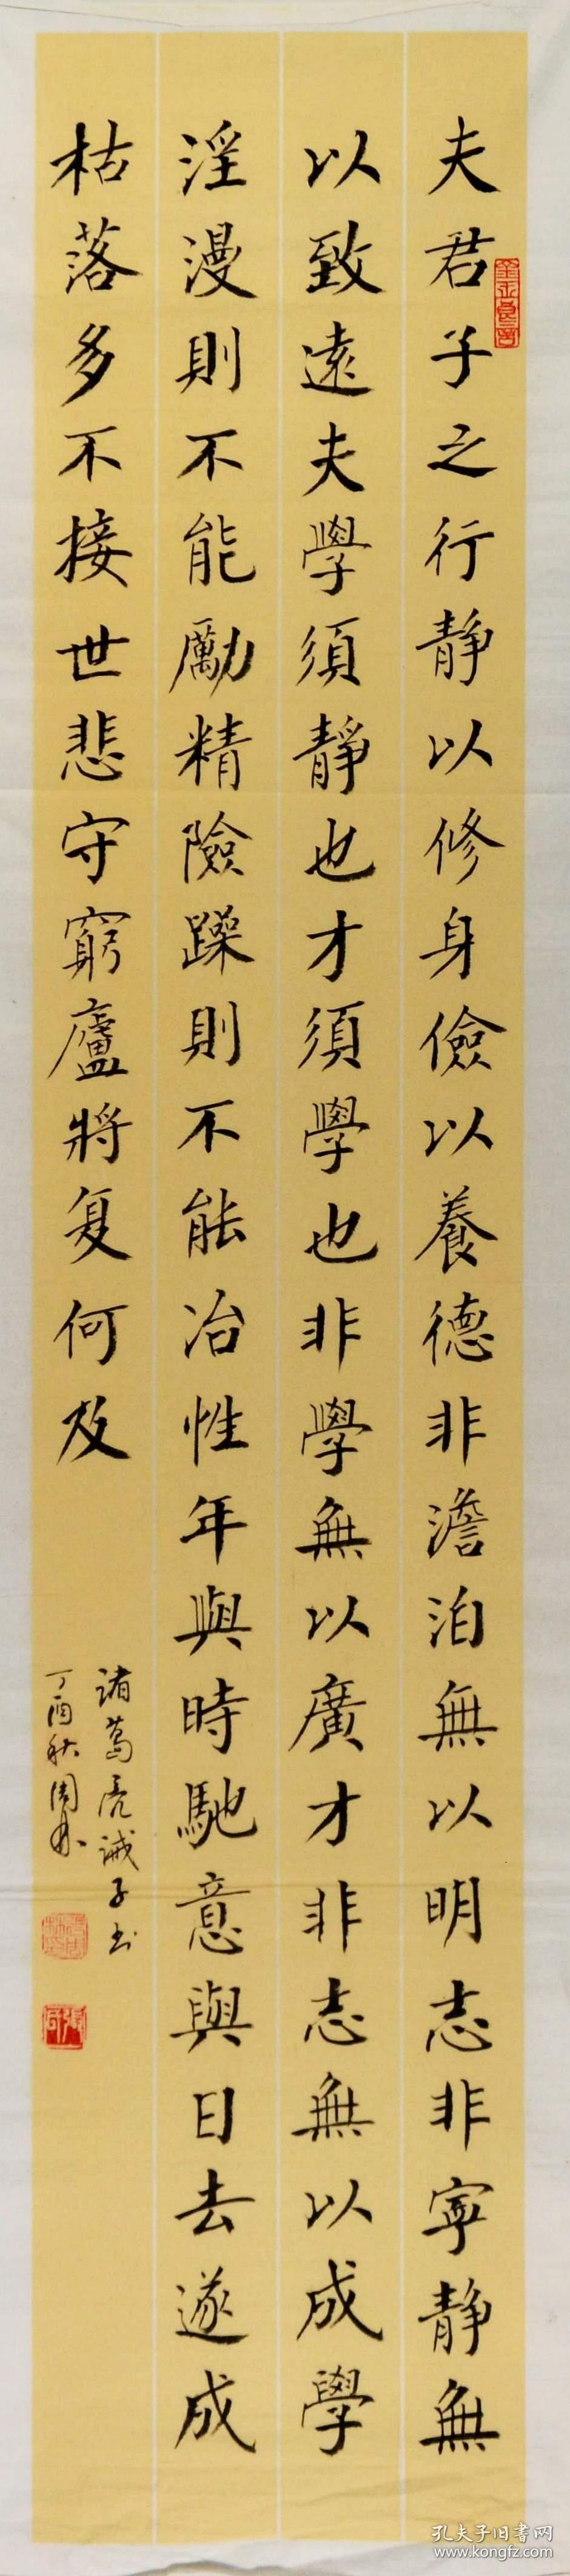 夫君子之行静以修身儉以養德非澹泊無以明志非寧靜無
以致遠夫學須靜也才須學也非學無以廣才非志無以成學
淫漫則不能勵精險躁則不能冶性年與時馳意與日去遂成
枯落多不接世悲守窮廬將复何及
諸葛亮誡子书
丁酉秋
孔夫子旧书网
www.kongfz.com